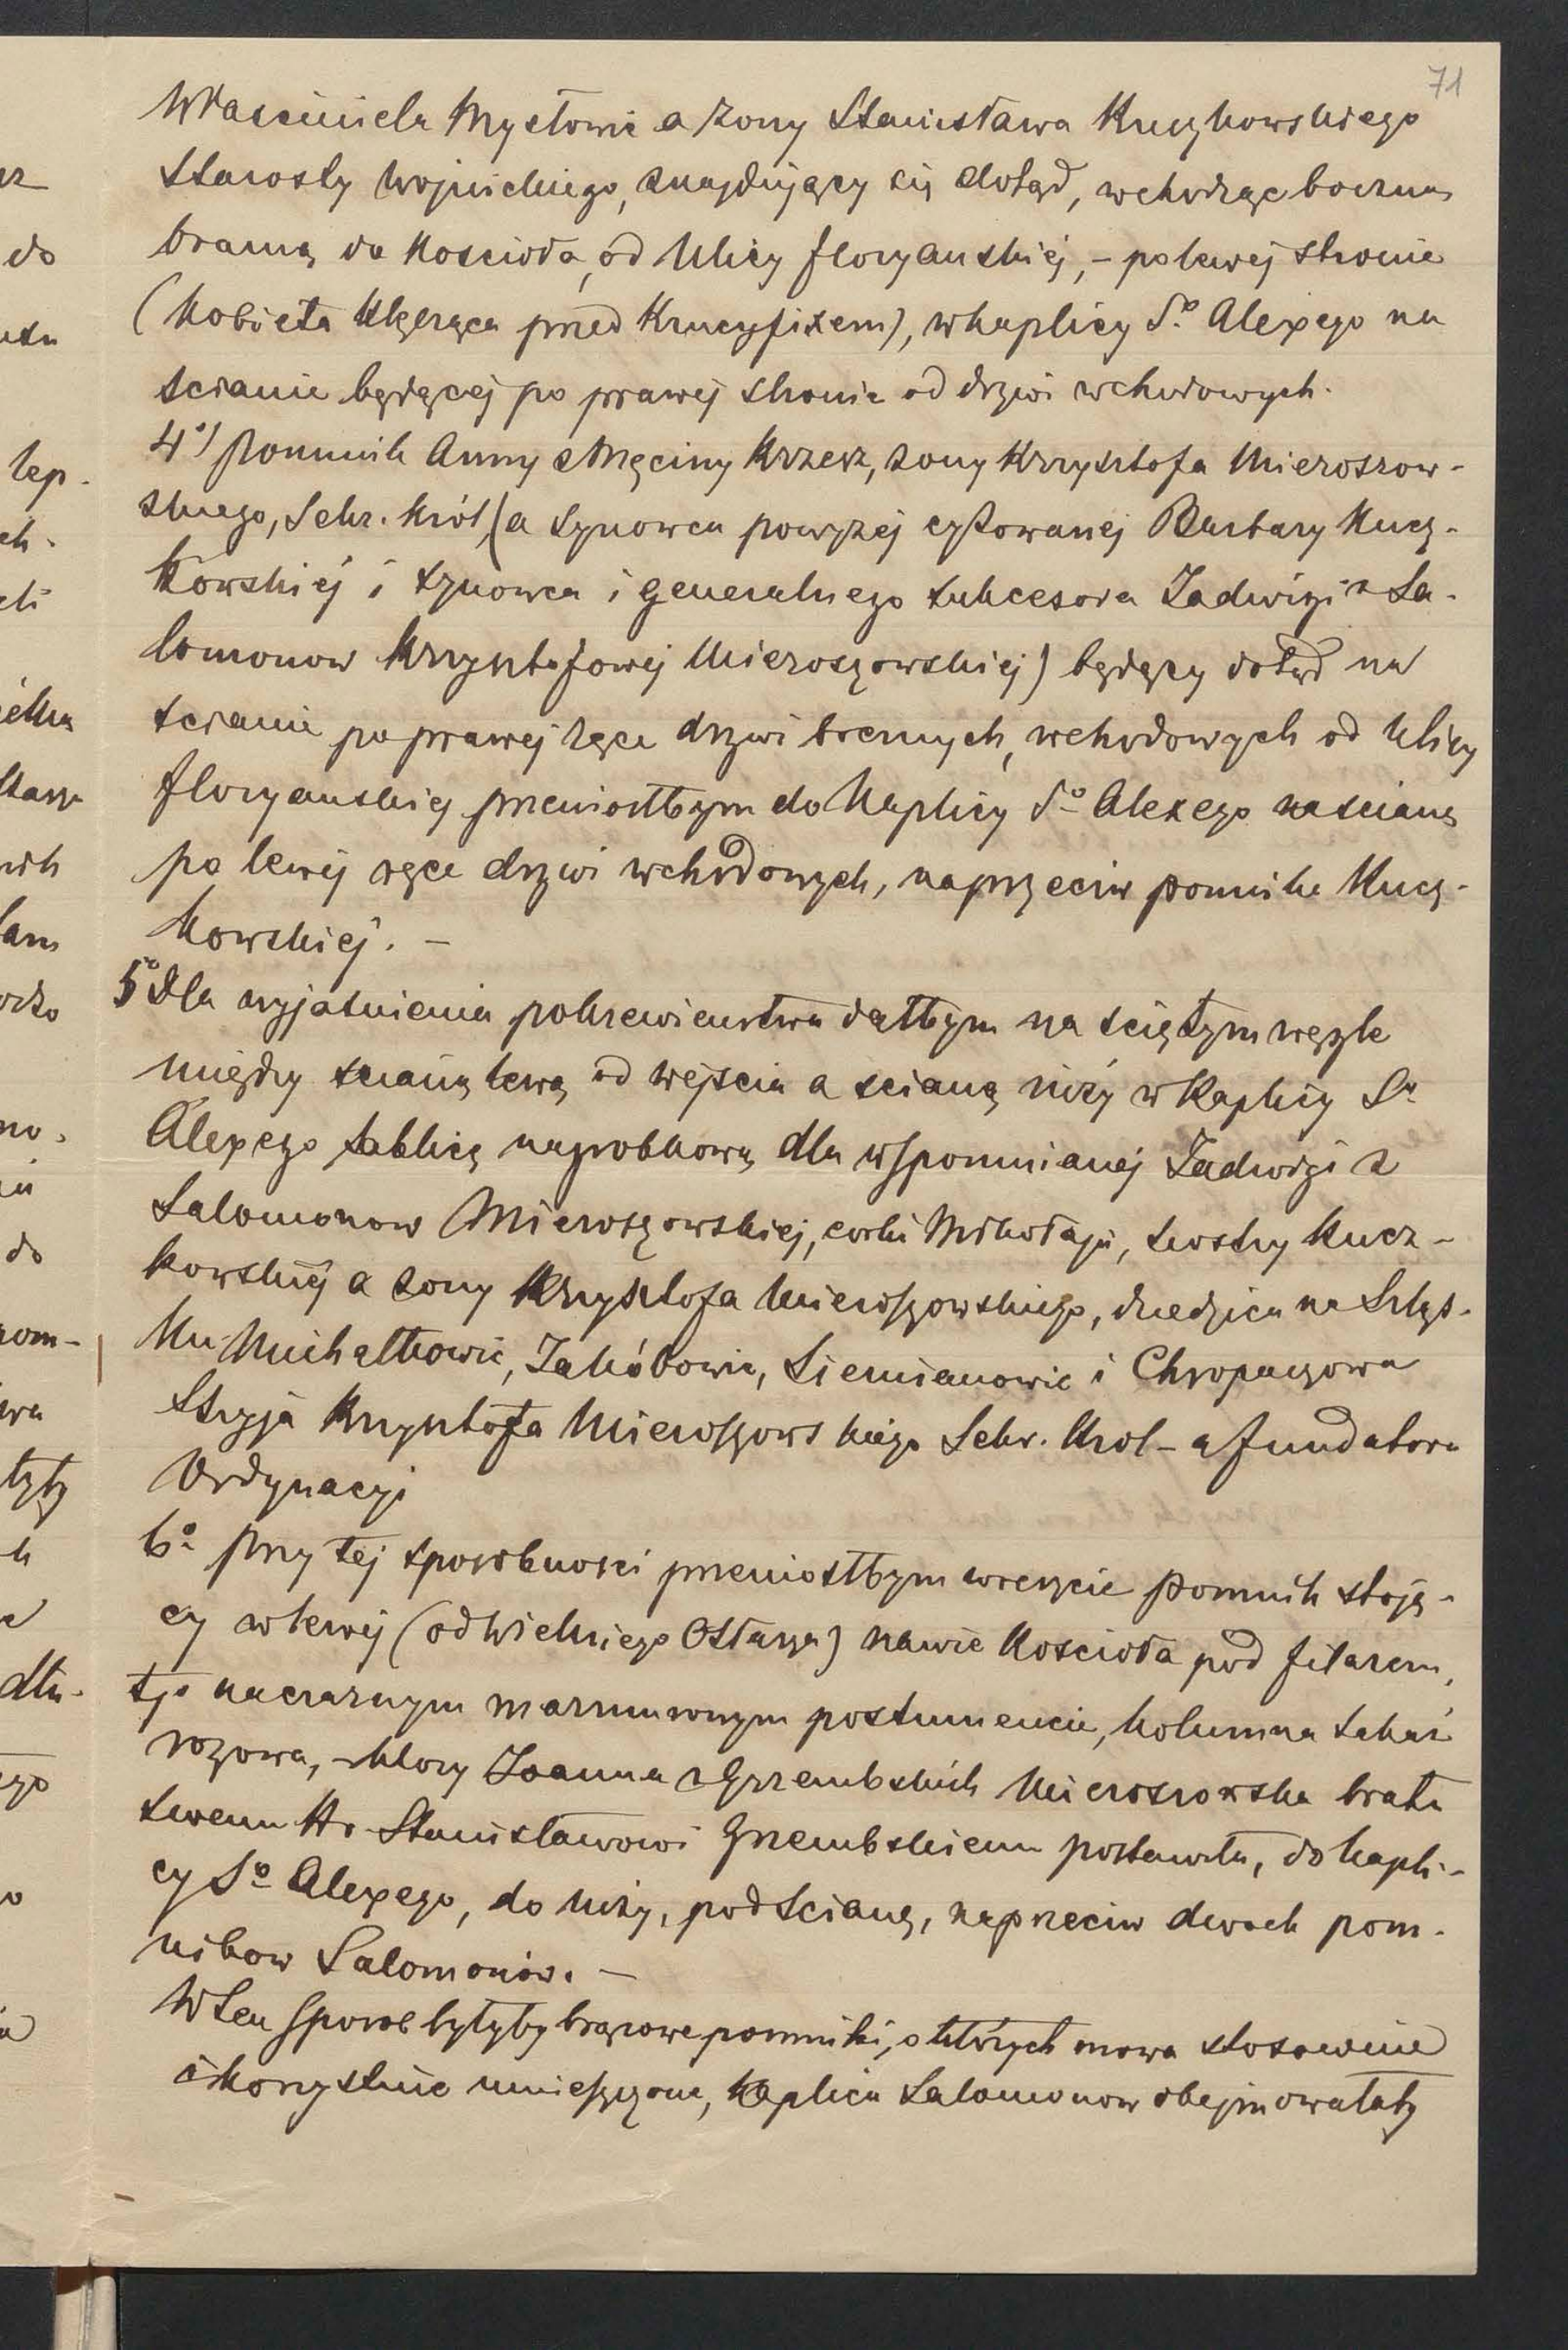 71
Właściciela Mysłowic a żony Stanisława Kuczkowskiego
Starosty Wojnickiego, znajdujący się dotąd, wchodząc boczną
bramą do Kościoła, od Ulicy floryanskiej, – po lewej stronie
(Kobieta klęcząca przed Krucyfixem), w kaplicy Sº Alexego na
scianie będącej po prawej stronie od drzwi wchodowych.
4º/ Pomnik Anny z Męciny Krzesz, żony Krzysztofa Mieroszow-
skiego, Sekr. Król, (a synowca powyżej cytowanej Barbary Kucz-
kowskiej i synowca i generalnego sukcesora Jadwigi z Sa-
lomonow Krzysztofowej Mieroszowskiej) będący dotąd na
scianie po prawej ręce drzwi bocznych, wchodowych od Ulicy
floryanskiej przeniosłbym do Kaplicy Sº Alexego na scianę
po lewej ręce drzwi wchodowych, naprzeciw pomnika Kucz-
kowskiej. –
5º Dla wyjasnienia pokrewienstwa dałbym na sciętym węgle
między scianą lewą od wejscia a scianą niży w Kaplicy Sº
Alexego tablicę nagrobkową dla wspomnianej Jadwigi z
Salomonow Mieroszowskiej, corki Mikołaja, siostry Kucz-
kowskiej a żony Krzysztofa Mieroszowskiego, dziedzica na Szląs-
ku Michałkowic, Jakóbowic, Siemianowic i Chropaczowa
Stryja Krzysztofa Mieroszowskiego Sekr. Krol – a fundatora
Ordynacyi
6º Przy tej sposobnosci przeniosłbym wreszcie pomnik stoją-
cy w lewej (od Wielkiego Ołtarza) nawie Kościoła pod filarem,
tj. na czarnym marmurowym postumencie, kolumna takaż
rozowa, – ktory Joanna z Grzembskich Mieroszowska bratu
swemu Hr. Stanisławowi Grzembskiemu postawiła, do kapli-
cy Sº Alexego, do niży, pod scianą, naprzeciw dwoch pom-
nikow Salomonów. –
W ten sposob byłyby brązowe pomniki, o których mowa stosownie
i korzystnie umieszczone, kaplica Salomonow obejmowałaby